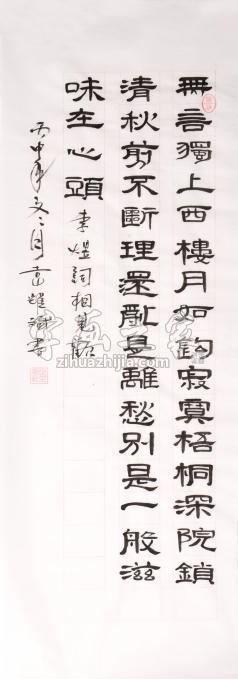 無言獨上西樓月如鈎寂寞梧桐深院鎖
清秋剪不斷理還亂是離愁別是一般滋
味在心頭 李煜詞相見歡
丙申年 月 書
字画之家
zihuazhijia.com